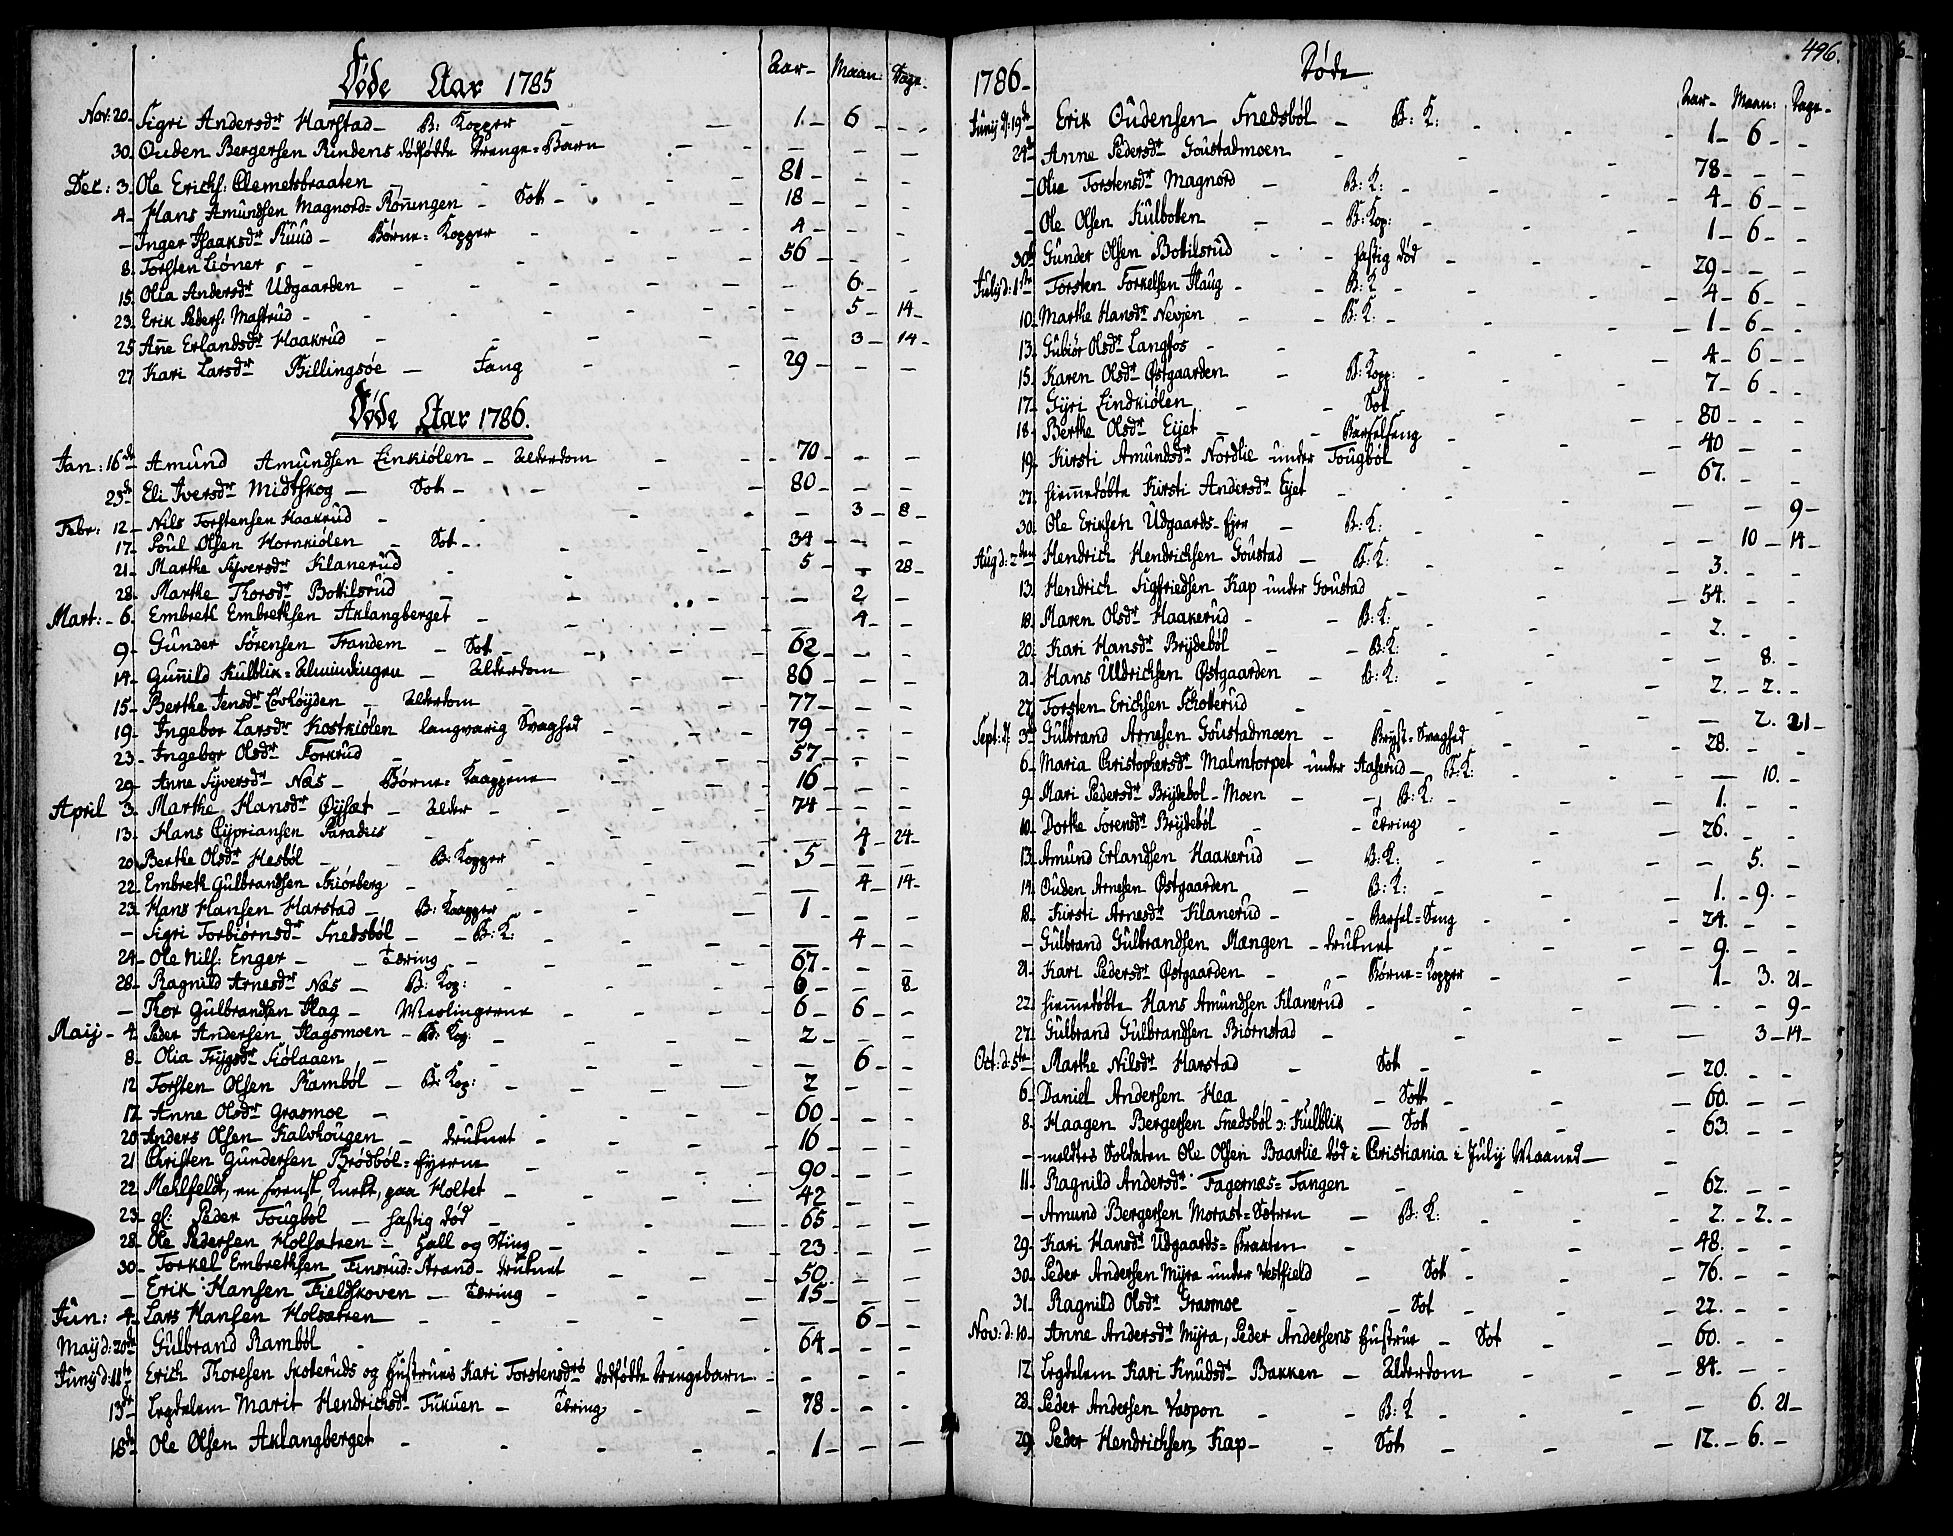 Døde Aar 1785 Aar Maan: Dage
Nov: 20 Sigri Andersdr Harstad B: Kopper 1. 6
30. Ouden Bergersen Rindens dødfødte Drenge=Barn
Dec: 3. Ole Erichs: Clemetsbraaten 81
4 Hans Amundsen Magnord=Rønningen Sott 18
Inger Isaaksdr Ruud Børne=Kopper 4
8. Torsten Liöner 56
15. Olia Andersdr Udgaarden 6
23. Erik Peders: Mastrud 5 14
25 Anne Erlandsdr Haakrud 3 14
27 Kari Larsdr Billingsøe Tang 29
Døde Aar 1786.
Jan: 16de Amund Amundsen Linkiølen Alderdom 70
23de Eli Iversdr Midtskog Sott 80
Febr: 12 Nils Torstensen Haakrud 3 8
17 Poul Olsen Hornkiølen Sot 34
21 Marthe Syversdr Klanerud 5 28
28. Marthe Thorsdr Bottilsrud 2
Mart: 6. Embreth Embrethsen Aklangberget 4
9 Gunder Sørensen Trandem Sot 62
14 Gunild Kulblik=Almindingen Alderdom 86
15 Berthe Jensdr Løvhøyden Alderdom 77
19 Ingebor Larsdr Kostkiølen langvarig Svaghed 79
23 Ingebor Olsdr Forkrud 57
29 Anne Syversdr Næs Børne=Kaapperne 16
April 3. Marthe Hansdr Øysæt Alder 74
13. Hans Cypriansen Paradiis 4 24
20 Berthe Olsdr Hesbøl B: Kopper 5
22. Embreth Gulbrandsen Skiørberg 4 14
23. Hans Hansen Harstad B: Kaapper 1
Sigri Torbiørnsdr Snedsbøl B: K: 4
24 Ole Nils: Enger Tæring 67
28 Ragnild Arnesdr Næs B: Kop: 6 8
Thor Gulbrandsen Hag Meslingerne 6 6
Maij 4 Peder Andersen Hagsmoen B: Kop: 2
8. Olia Trygsdr Siølaaen 6
12 Torsten Olsen Rambøl B: Kop: 2
17 Anne Olsdr Grasmoe 60
20 Anders Olsen Kalvhougen druknet 16
21 Christen Gundersen Brødbøl=Eyerne 90
22 Mehlfeldt, en svensk Knekt, paa Holtet 42
23 gl: Peder Tougbøl hastig død 65
28. Ole Pedersen Holsætren Hall og Sting 23
30 Torkel Embrethsen Finsrud=Strand druknet 50
Erik Hansen Fieldskoven Tæring 15
Jun: 4 Lars Hansen Holsætren 6
Maij d: 20de Gulbrand Rambøl 64
Junij d: 11te Erich Thoresen Skoteruds og Hustrues Kari Torstensdrs dødfødte Drengebarn
13de Legdelem Marit Hendrichsdr Tukuen Tæring 78
18de Ole Olsen Aklangberget 1
496.
1786 Døde Aar Maan: Dage
Junij d: 19de Erik Oudensen Snedsbøl B: K: 1 6
24de Anne Pedersdr Goustadmoen 78
Olia Torstensdr Magnord B: K: 4 6
Ole Olsen Kulbotten B: Kop: 1 6
30de Gunder Olsen Bottilsrud hastig død 29
Julij d: 1ste Torsten Forkelsen Haug B: K 4 6
10 Marthe Hansdr Nevjen B: K: 1 6
13. Gubiør Olsdr Langfos 4 6
15. Karen Olsdr Østgaarden B: Kopp: 7 6
17 Gyri Lindkiølen Sot 80
18 Berthe Olsdr Eyet Barselseng 40
19. Kirsti Amundsdr Nordlie under Tougbøl 67.
27. hiemmedøbte Kirsti Andersdr Eyet 9
30. Ole Eriksen Udgaards=Eyer B: K: 10 14
Aug d: 2den Hendrich Hendrichsen Goustad B: K: 3.
13. Hendrich Sigfriedsen Kap under Goustad 54.
18. Maren Olsdr Haakerud B: K: 2.
20. Kari Hansdr Brydebøl B: K: 8.
21. Hans Uldrichsen Østgaarden B: K: 2. 2.
27. Torsten Erichsen Skotterud 2. 21
Sept: d: 3de Gulbrand Arnesen Goustadmoen Bryst=Svaghed 28.
6. Maria Christophersdr Malmtorpet under Aaserud B: K: 10.
9. Mari Pedersdr Brydebøl=Moen B: K: 1.
10. Dorthe Sørensdr Brydebøl Tæring 26.
13. Amund Erlandsen Haakerud B: K: 5.
14. Ouden Arnesen Østgaarden B: K: 1. 9.
18. Kirsti Arnesdr Klanerud Barsel=Seng 24.
Gulbrand Gulbrandsen Mangen druknet 9.
21. Kari Pedersdr Østgaarden Børne=Kopper 1 3. 21
22. hiemmedøbte Hans Amundsen Klanerud 9
27. Gulbrand Gulbrandsen Biørnstad 3 14
Oct: d: 5te Marthe Nilsdr Harstad Sot 20.
6. Daniel Andersen Hea Sott 60.
8. Haagen Bergersen Snedsbøl ɔ: Kulblik Sot 63.
meldtes Soldaten Ole Olsen Baarlie død i Christiania i Julij Maaned
11. Ragnild Andersdr Fagernæs=Tangen 62.
Amund Bergersen Morast=Sætren B: K: 2. 2.
29. Kari Hansdr Udgaards=Braaten 48.
30. Peder Andersen Myra under Vestfield Sott 76.
31. Ragnild Olsdr Grasmoe Sot 22.
Nov: d: 10 Anne Andersdr Myra, Peder Andersens Hustrue Sot 60.
17 Legdelem Kari Knudsdr Bakken Alderdom 84.
28. Peder Andersen Vaspon B: K 6. 21
29. Peder Hendrichsen Kap Sot 12. 6.